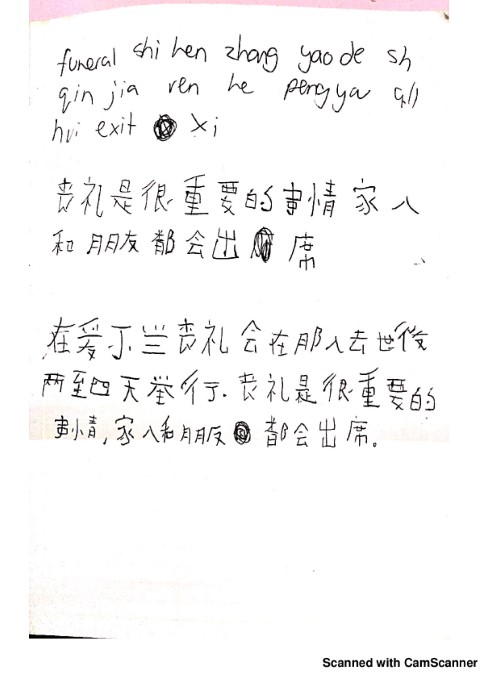 funeral shi hen zhong yao de sh
qin jia ren he pengyu all
hui exit xi
丧礼是很重要的事情家人
和朋友都会出席
在爱尔兰丧礼会在那人去世後
两至四天举行.丧礼是很重要的
事情,家人和朋友都会出席。
Scanned with CamScanner